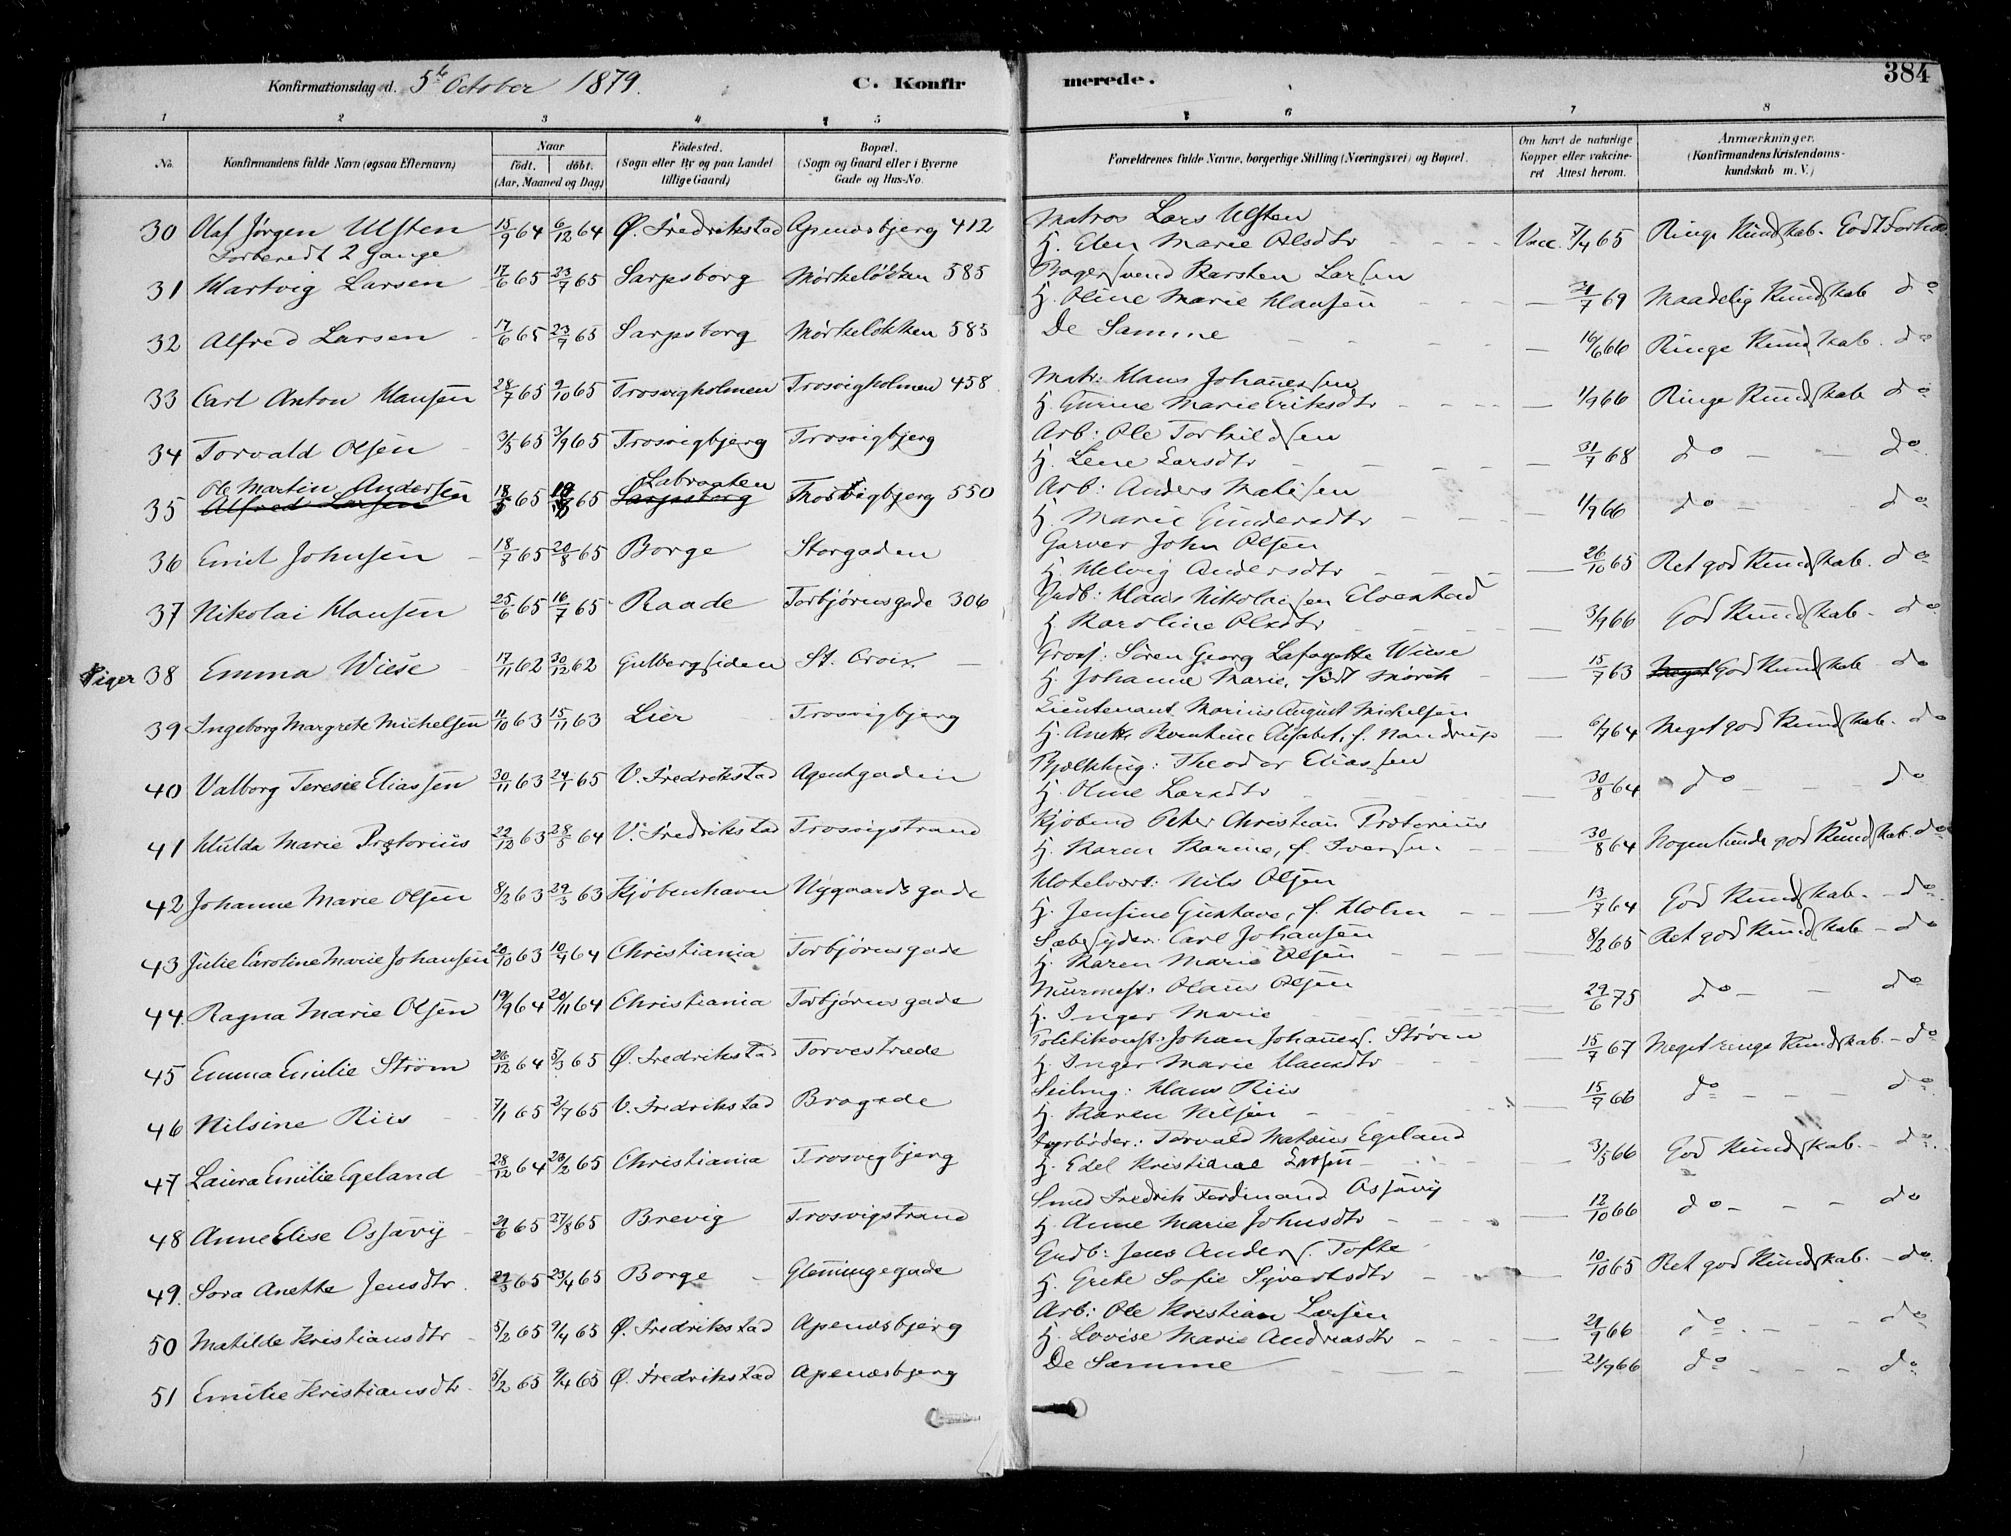 Konfirmationsdag d. 5te October 1879. C. Konfirmerede. 384
1 2 3 4 5 6 7 8
No. Konfirmandens fulde Navn (ogsaa Efternavn) Naar født. døbt. (Aar, Maaned og Dag) Fødested. (Sogn eller By og paa Landet tillige Gaard) Bopæl. (Sogn og Gaard eller i Byerne Gade og Hus-No. Forældrenes fulde Navne, borgerlige Stilling (Næringsvei) og Bopæl. Om havt de naturlige Kopper eller vakcineret Attest herom. Anmærkninger. (Konfirmandens Kristendomskundskab m. V.)
30 Olaf Jörgen Ulsten 15/9 64 6/12 64 Ø. Fredrikstad Apenæsbjerg 412 Matros Lars Ulsten
Forberedt 2 Gange H. Elen Marie Olsdtr Vacc. 7/4 65 Ringe Kundskab. Godt Forhold
31 Hartvig Larsen 17/6 65 23/7 65 Sarpsborg Mörkelökken 585 Bagersvend Karsten Larsen
H. Oline Marie Hansen 21/7 69 Maadelig Kundskab do
32 Alfred Larsen 17/6 65 23/7 65 Sarpsborg Mörkelökken 583 De Samme 16/6 66 Ringe Kundskab. do
33 Carl Anton Hansen 28/7 65 9/10 65 Trosvigholmen Trosvigholmen 458. Matr: Hans Johannesen
H. Gurine Marie Eriksdtr 1/9 66 Ringe Kundskab do
34 Torvald Olsen 3/5 65 3/9 65 Trosvigbjerg Trosvigbjerg Arb: Ole Torkildsen
H. Lene Larsdtr 31/7 68 do do
35 Ole Martin Andersen Alfred Larsen 18/5 65 65 Labraaten Sarpsborg Trosvigbjerg 550 Arb: Anders Matisen
H. Marie Gundersdtr 1/9 66 do do
36 Emil Johnsen 18/7 65 20/8 65 Borge Storgaden Garver John Olsen
H. Helvig Andersdtr 26/10 65 Ret god Kundskab. do
37 Nikolai Hansen 25/6 65 16/7 65 Raade Torbjörnsgade 306 Gudb: Hans Nikolaisen
H. Karoline Olsdtr 3/9 66 God Kundskab. do
Piger 38 Emma Wiese 17/11 62 30/12 62 Gulbergsiden St. Croix Gross: Sören Georg Lafayette Wiese
H. Johanne Marie, født Mörch 15/7 63 Meget God Kundskab do
39 Ingeborg Margrete Michelsen 11/10 63 15/11 63 Lier Trosvigbjerg Lieutenant Marius August Michelsen
H. Anette Elisabet, f. Nandrup 6/7 64 Meget god Kundskab. do
40 Valborg Teresie Eliassen 30/11 63 24/1 65 V. Fredrikstad Agentgaden Theodor Eliassen
H. Oline Larsdtr 30/8 64 do do
41 Hulda Marie Prætorius 22/12 63 28/5 64 V. Fredrikstad Trosvigstrand Kjöbmd Peter Christian Prætorius
H. Karen Karine, f. Iversen 30/8 64 Nogenlunde god Kundskab. do
42 Johanne Marie Olsen 8/2 63 29/3 63 Kjöbenhavn Nygaardsgade Hotelvært: Nils Olsen
H. Jensine Gustave, f. Holm 13/7 64 God Kundskab. do
43 Julie Caroline Marie Johansen 20/10 63 10/4 64 Christiania Torbjörnsgade Sæbesyder: Carl Johansen
H. Karen Marie Olsen 8/2 65 Ret god Kundskab do
44. Ragna Marie Olsen 19/9 64 20/11 64 Christiania Torbjörnsgade Murmest: Olaus Olsen
H. Inger Marie 29/6 75 do do
45 Emma Emilie Ström 26/12 64 5/3 65 Ø. Fredrikstad Torvestræde Politikonst: Johan Johannes. Ström
H. Inger Marie Hansdtr 15/7 67 Meget ringe Kundskab. do
46 Nilsine Riis 7/1 65 2/7 65 V. Fredrikstad Brogade Seilmg: Hans Riis
H. Karen Nilsen 15/7 66 do do
47 Laura Emilie Egeland 28/12 64 26/2 65 Christiania Trosvigbjerg Fyrböder: Torvald Mathias Egeland
H. Edel Kristiane 3/5 66 God Kundskab. do
48 Anne Elise Ossavy 21/6 65 27/8 65 Brevig Trosvigstrand Smed Fredrik Ferdinand Ossavy
H. Anne Marie Johnsdtr 12/10 66 do do
49. Sora Anette Jensdtr. 21/3 65 23/4 65 Borge Glemmingegade Gudb: Jens Anders. Tofte
H. Grete Sofie Syvertsdtr 10/10 65 Ret god Kundskab. do
50 Matilde Kristiansdtr 5/2 65 9/4 65 Ø. Fredrikstad Apenæsbjerg Arb: Ole Kristian Larsen
H. Lovise Marie Andreasdtr 21/9 66 do do
51 Emilie Kristiansdtr. 5/2 65 9/4 65 Ø. Fredrikstad Apenæsbjerg De Samme 21/9 66 do do